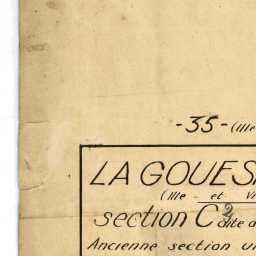 -35-(Ille
LA GOUES
(Ille - et Vi
section C2 dite d
Ancienne section u